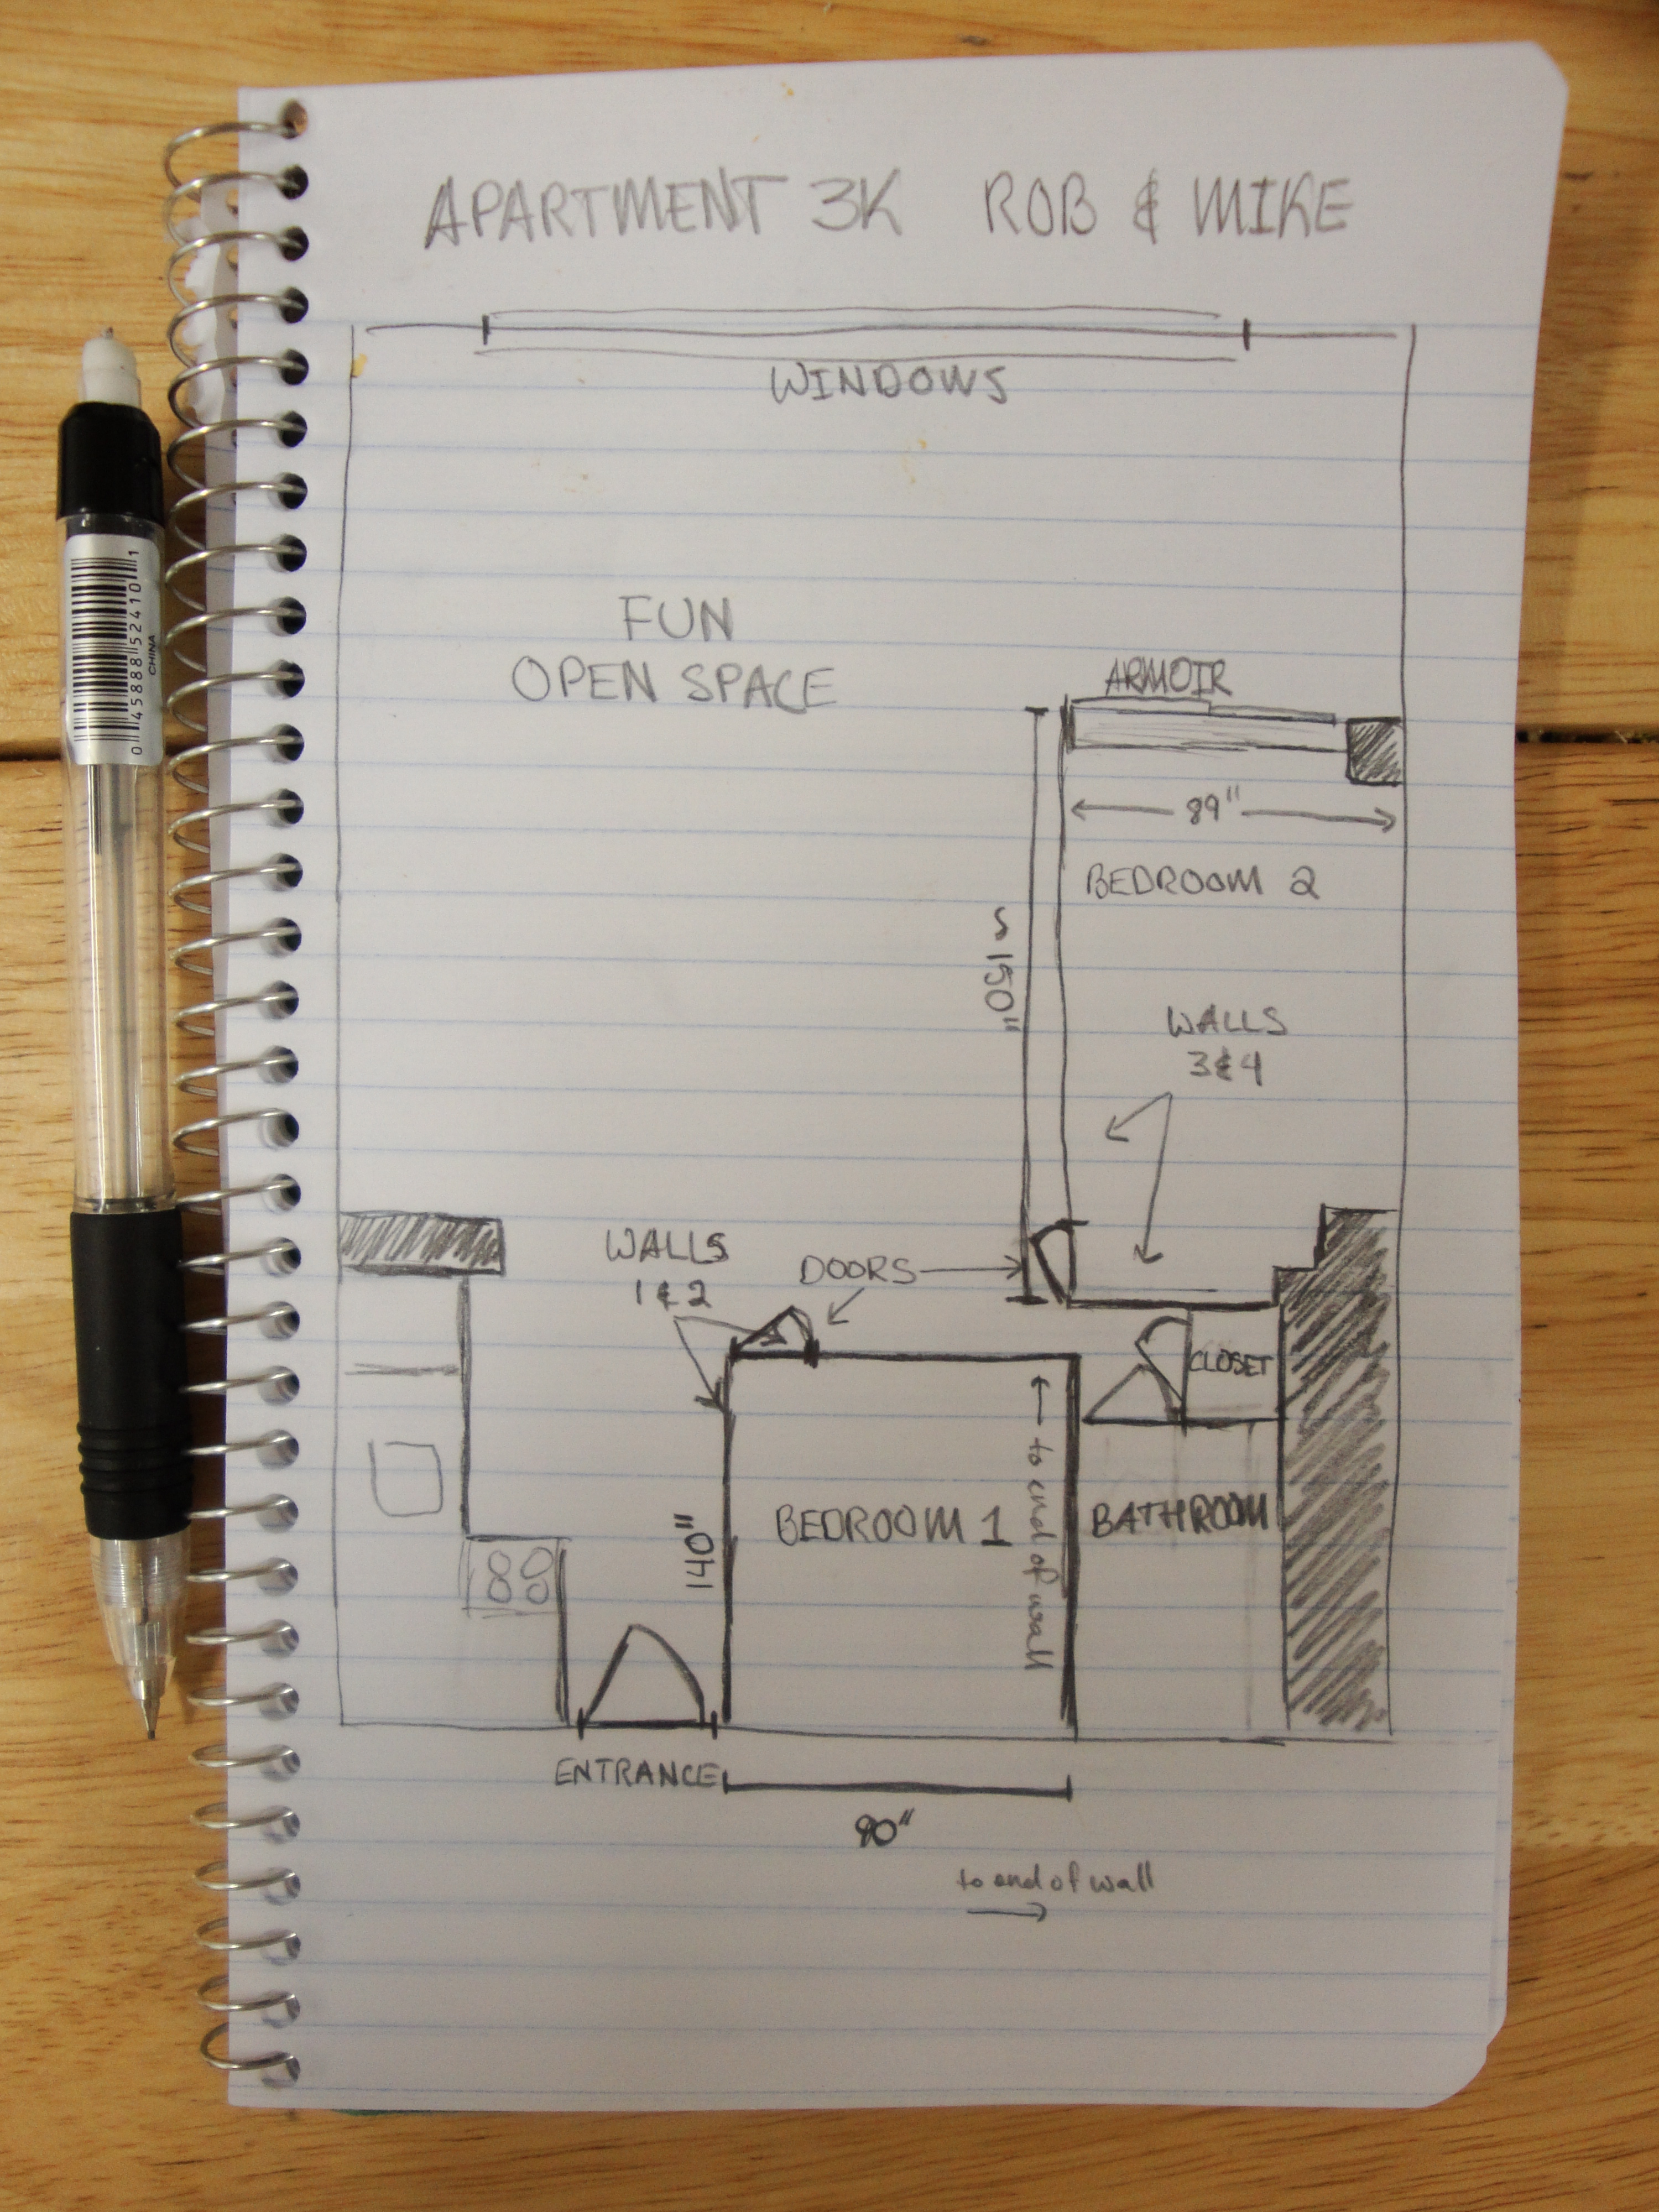 APARTMENT 3K ROB & MIKE
WINDOWS
FUN
OPEN SPACE
ARMOIR
89"
BEDROOM 2
~150"
WALLS
3&4
WALLS
1&2
DOORS
CLOSET
140"
BEDROOM 1
← to end of wall
BATHROOM
88
ENTRANCE
90"
to end of wall
→
0 45888 52410 1
CHINA